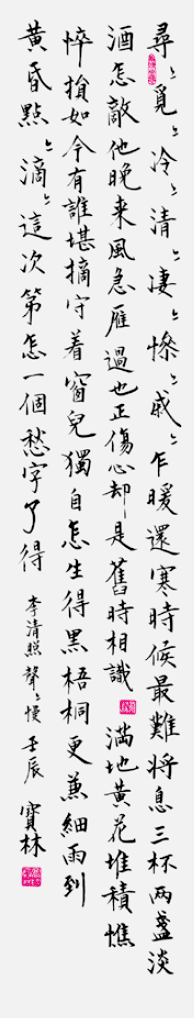 尋〻覓〻冷〻清〻淒〻慘〻戚〻乍暖還寒時候最難將息三杯兩盞淡
酒怎敵他晚来風急雁過也正傷心却是舊時相識 滿地黃花堆積憔
悴損如今有誰堪摘守着窗兒獨自怎生得黑梧桐更兼細雨到
黃昏點〻滴〻這次第怎一個愁字了得 李清照聲〻慢 壬辰 寶林